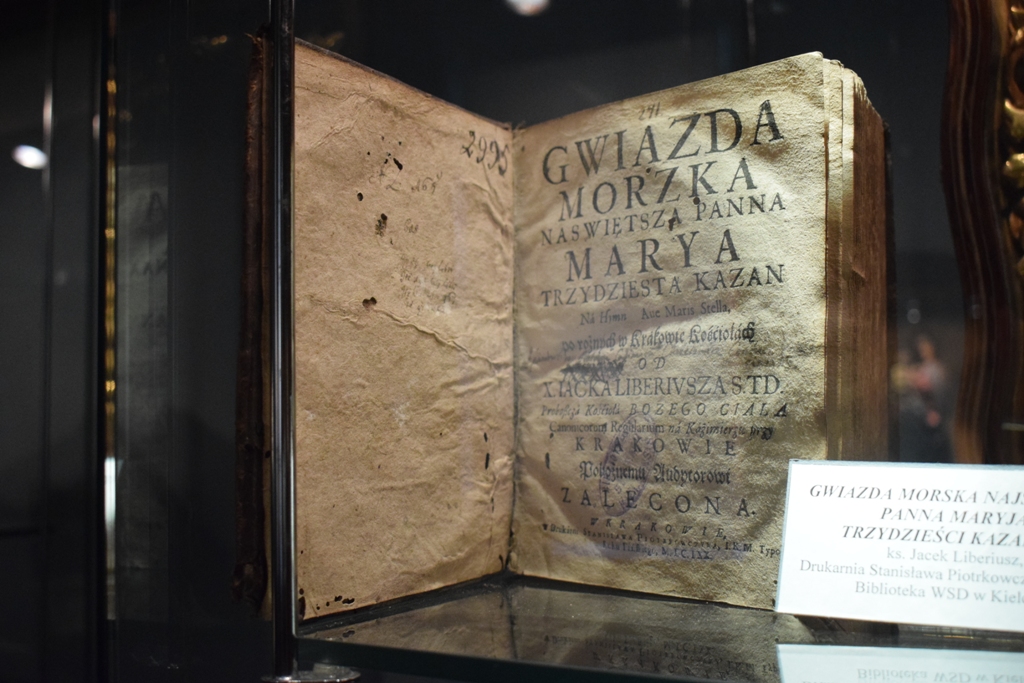 2995
GWIAZDA
MORZKA
NASWIĘTSZA PANNA
MARYA
TRZYDZIESTA KAZAN
Ná Hymn Aue Maris Stella,
po rożnych w Krákowie Kościołách
OD
X. IACKA LIBERIVSZA S. T D.
Probosczá Kośćiołá BOZEGO CIALA
Canonicorum Regularium ná Káźimierzu przy
KRAKOWIE
Pobożnemu Audytorowi
ZALECONA.
W KRAKOWIE,
w Drukárni Stánisłáwá Piotrkowczyka, I.K.M. Typo
GWIAZDA MORSKA NAJ
PANNA MARYJA
TRZYDZIEŚCI KAZA
ks. Jacek Liberiusz,
Drukarnia Stanisława Piotrkowcz
Biblioteka WSD w Kiel